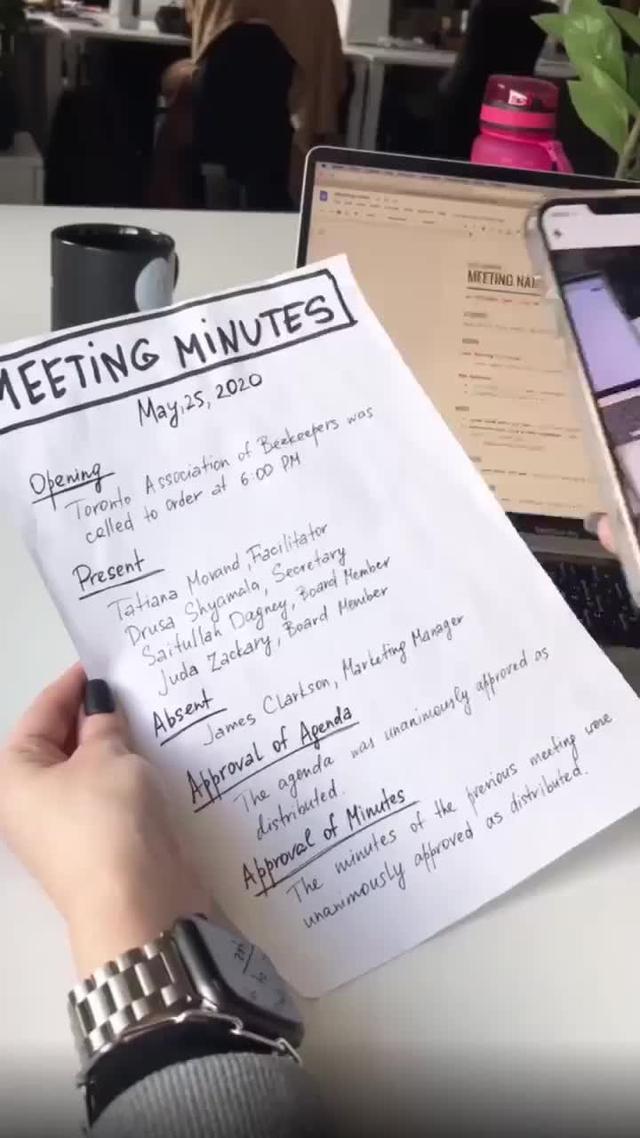 MEETING MINUTES
May, 25, 2020
Opening
Toronto Association of Beekeepers was
called to order at 6:00 PM
Present
Tatiana Morand, Facilitator
Drusa Shyamala, Secretary
Saifullah Dagney, Board Member
Juda Zackary, Board Member
Absent
James Clarkson, Marketing Manager
Approval of Agenda
The agenda was unanimously approved as
distributed.
Approval of Minutes
The minutes of the previous meeting were
unanimously approved as distributed.
MEETING NA